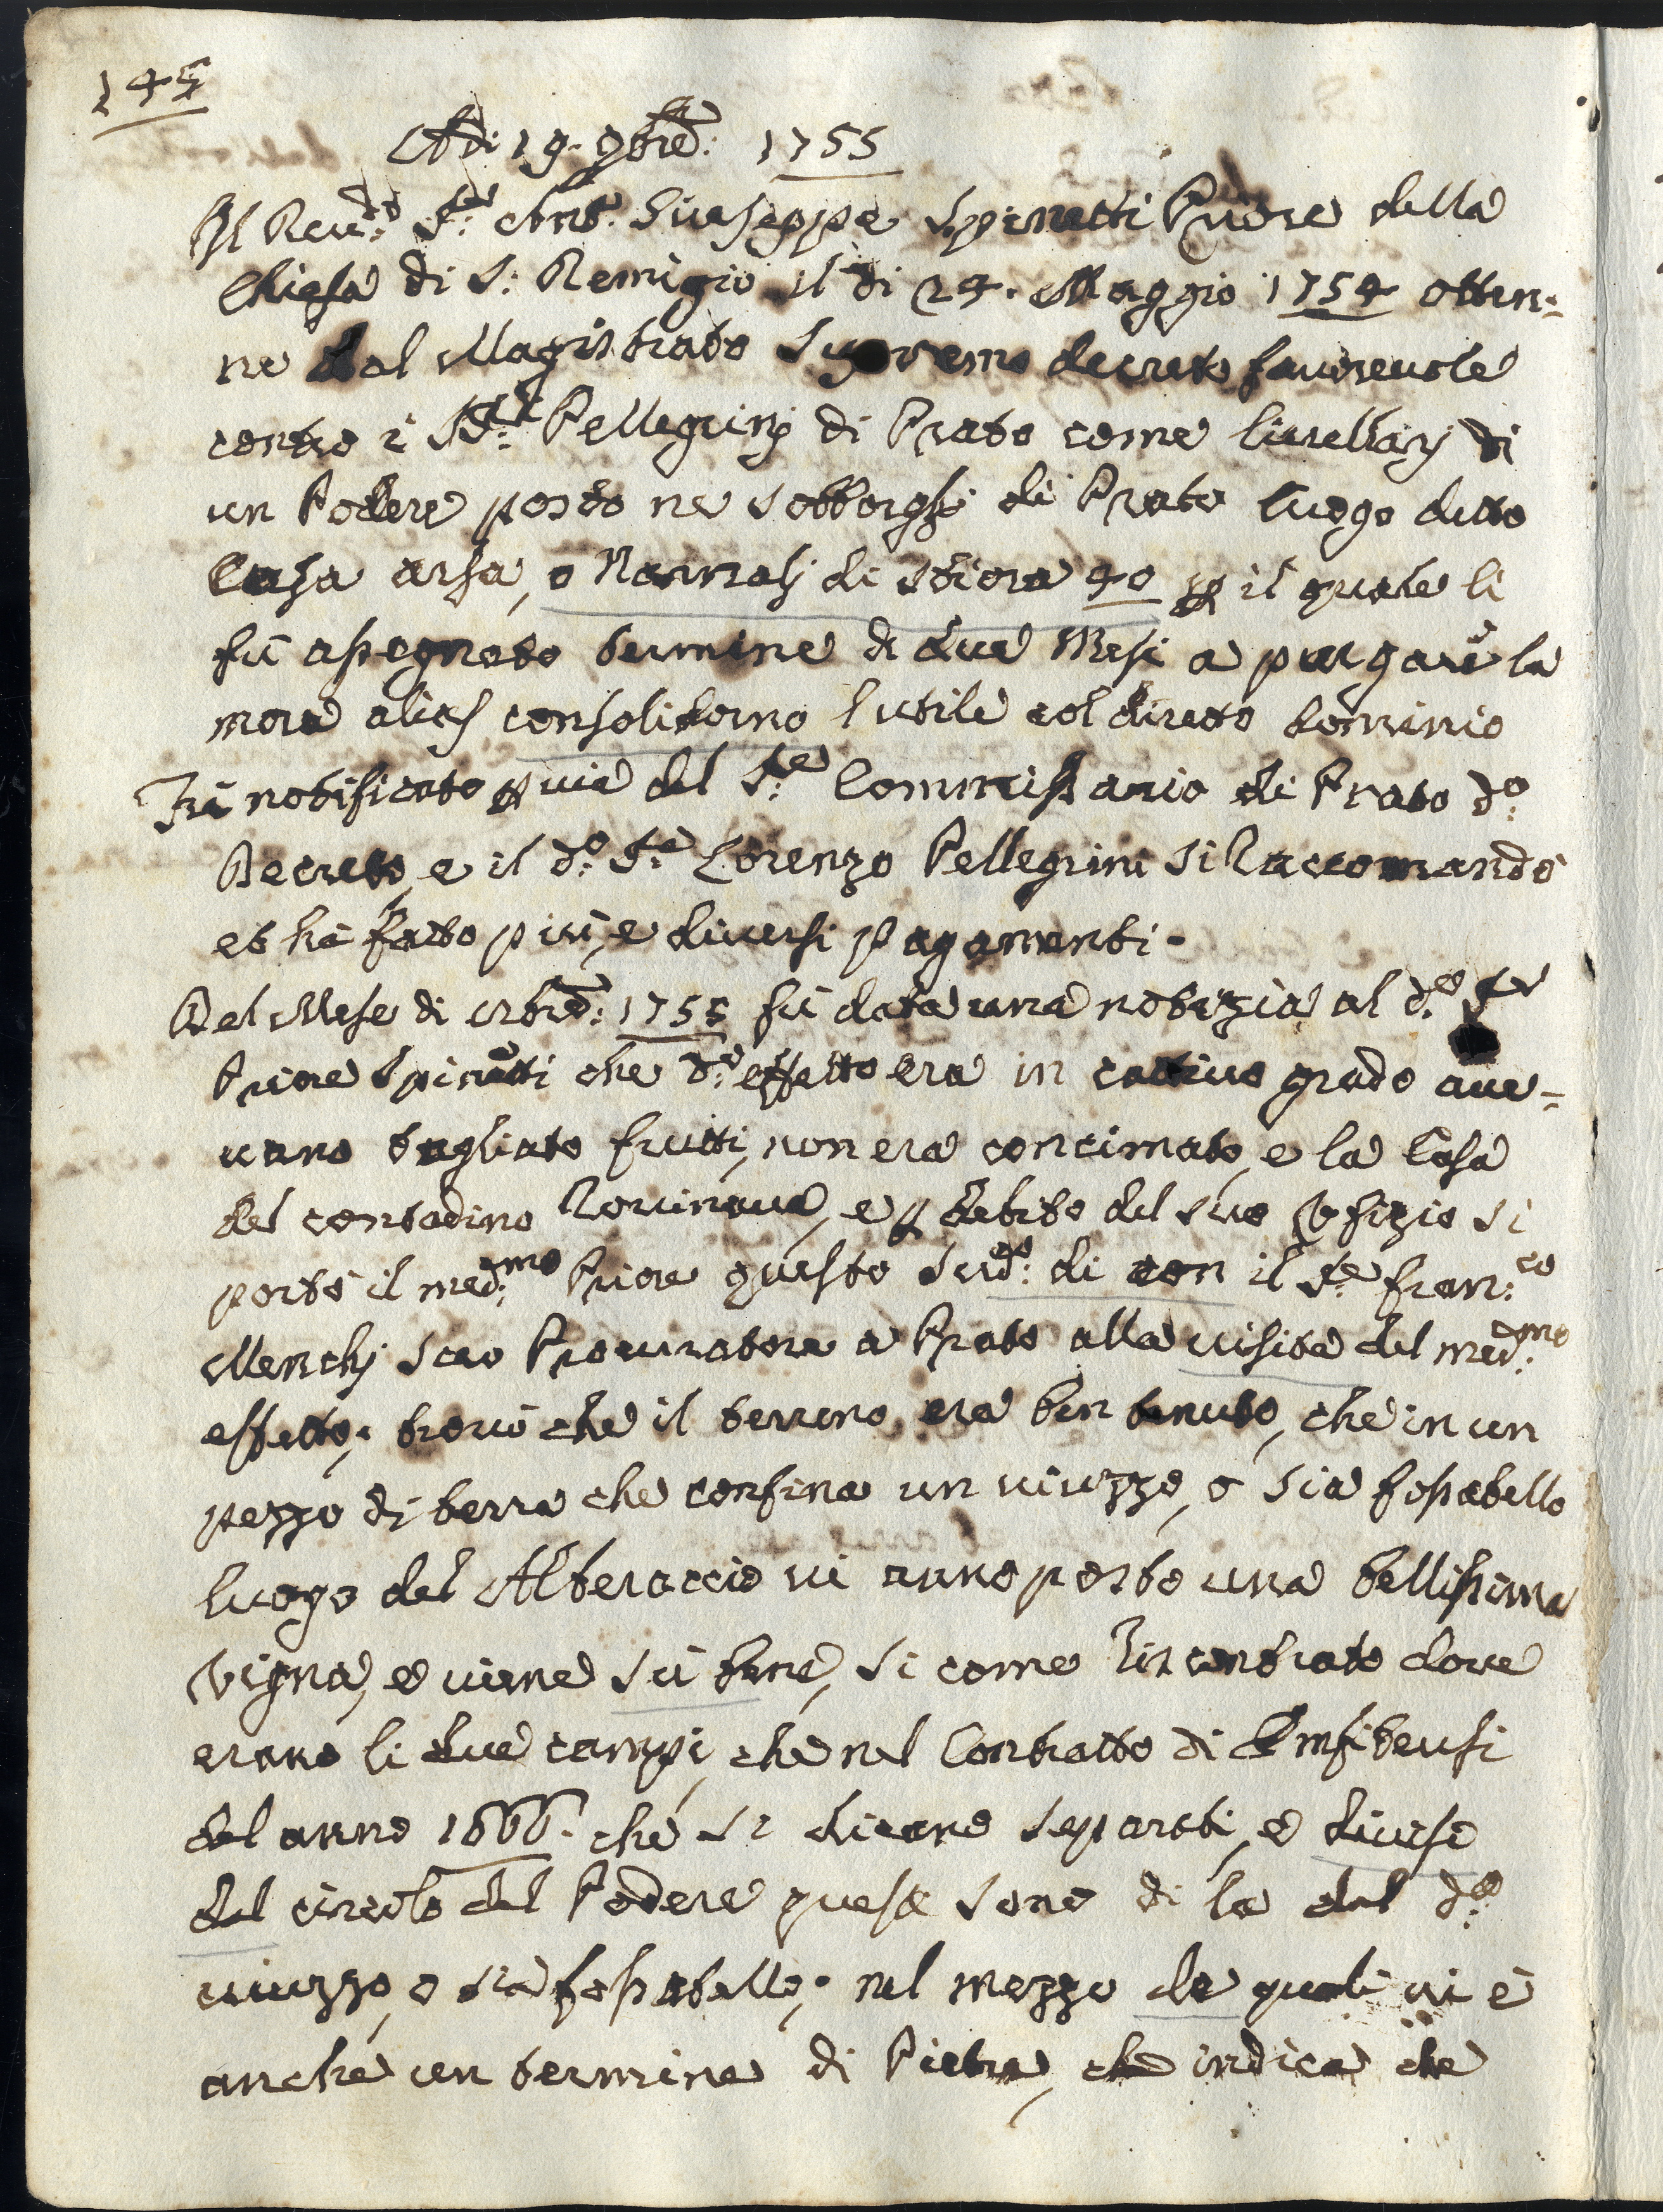 145
Adi 19. 9bre: 1755
Il Reu:do Sr: Ant:o Giuseppe Spinetti Priore della
Chiesa di S: Remigio il di 24. Maggio 1754 otten:
ne dal Magistrato Supremo decreto fauoreuole
contro i SSri: Pellegrinj di Prato come liuellarj di
un Podere posto ne sobborghi di Prato luogo detto
Casa arsa, o Nannalj di stiora 40 il quale li
fù assegnato termine di due Mesi a purgare la
mora alias consolidorno l utile col diretto dominio
Fù notificato p uia del Sre: Commissario di Prato do:
Decreto, e il do: Sre: Lorenzo Pellegrini si Raccomandò
et hà fatto più, e diuersi pagamenti.
Del Mese di 8bre: 1755 fù data una notizia al do: Sr
Priore Spinetti che do: effetto era in cattiuo grado aue=
uano tagliato frutti, non era concimato, e la Casa
del contadino Rouinaua, e p debito del suo Vfizio si
portò il med:mo Priore questo sud:o di con il Sre: Fran:co
Menchj suo Procuratore a Prato alla uisita del med:mo
effetto; trouò che il terreno era ben tenuto, che in un
pezzo di terra che confina un uiuzzo, o sia fossatello
luogo del Alberaccio ui anno posto una bellissima
Vigna, e uiene sù bene, si come riscontrato doue
erano li due campi, che nel Contratto di Emfiteusi
del anno 1666. che si dicano separati, e diuisi
dal circuito del Podere questi sono di la dal do:
uiuzzo, o sia fossatello; nel mezzo de quali ui è
anche un termine di Pietra, che indica che